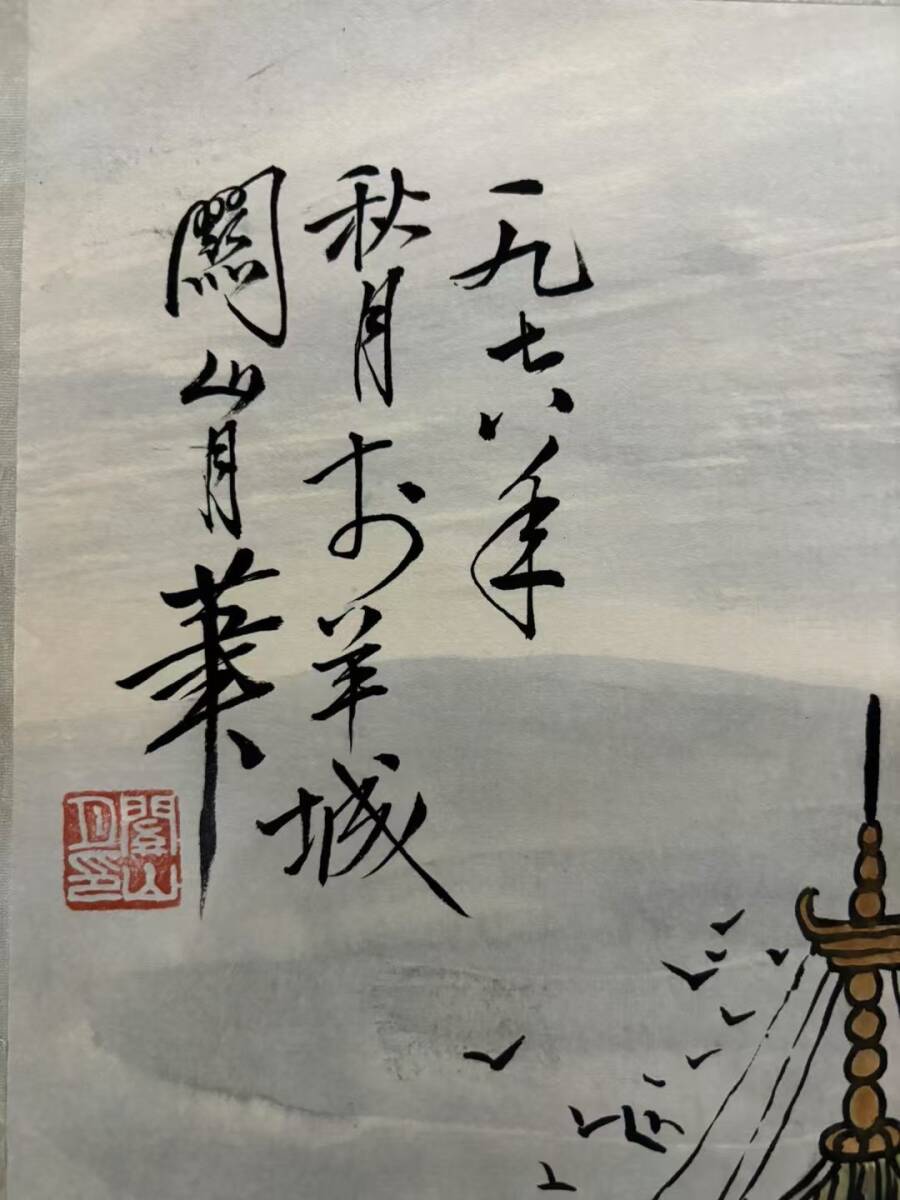 一九七八年
秋月於羊城
關山月筆
關山月印